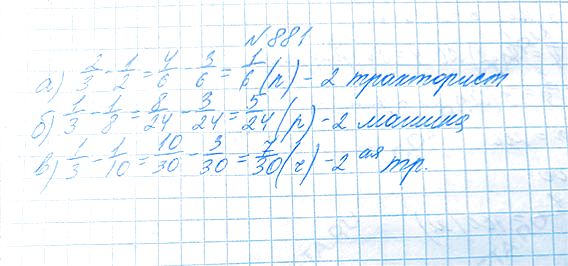 №881
а) 2/3 - 1/2 = 4/6 - 3/6 = 1/6 (п) - 2 тракторист
б) 1/3 - 1/8 = 8/24 - 3/24 = 5/24 (р) - 2 машина
в) 1/3 - 1/10 = 10/30 - 3/30 = 7/30 (ч) - 2 ая тр.